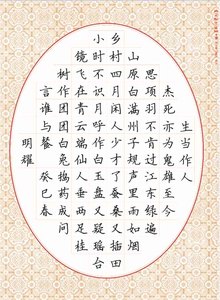 生当作人
杰死亦为鬼雄至今
思项羽不肯过江东绿遍
山原白满州子规声里雨如烟
乡村四月闲人少才了蚕桑又插田
小时不识月呼作白玉盘又疑瑶台
镜飞在青云端仙人垂两足桂
树作团团白兔捣药成问
言谁与餐癸巳春
明耀